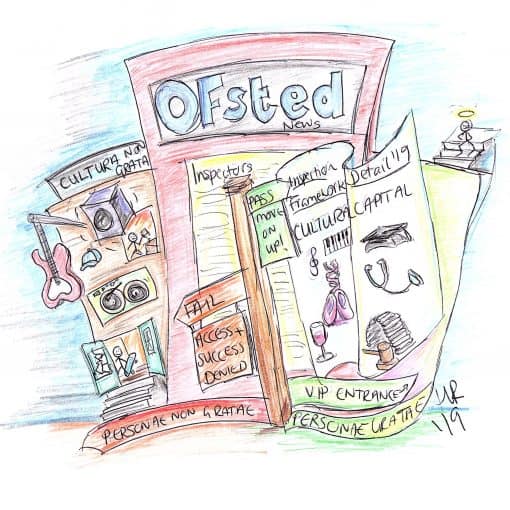 OFsted
News
CULTURA NON
GRATA
Inspectors
PASS
MOVE
ON
UP!
Inspection
Framework
CULTURAL
Detail '19
CAPITAL
FAIL
ACCESS +
SUCCESS
DENIED
VIP ENTRANCE
PERSONAE NON GRATAE
PERSONAE GRATAE
'19